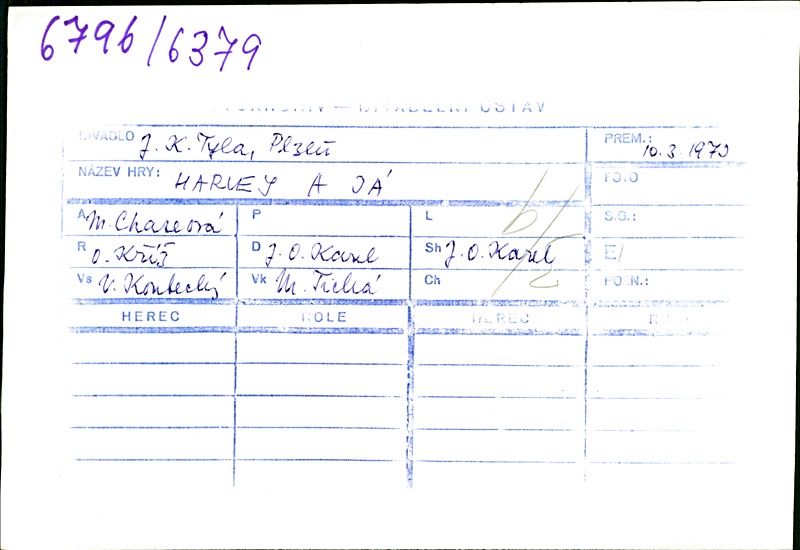 6796/6379
DIVADELNÍ ÚSTAV
DIVADLO J. K. Tyla, Plzeň PREM.: 10.3.1973
NÁZEV HRY: HARVEY A JÁ FOTO
A M. Chaseová P L S.G.:
R O. Kříž D J. O. Karel Sh J. O. Karel E/
Vs V. Koubecký Vk M. Tichá Ch POZN.:
HEREC ROLE HEREC